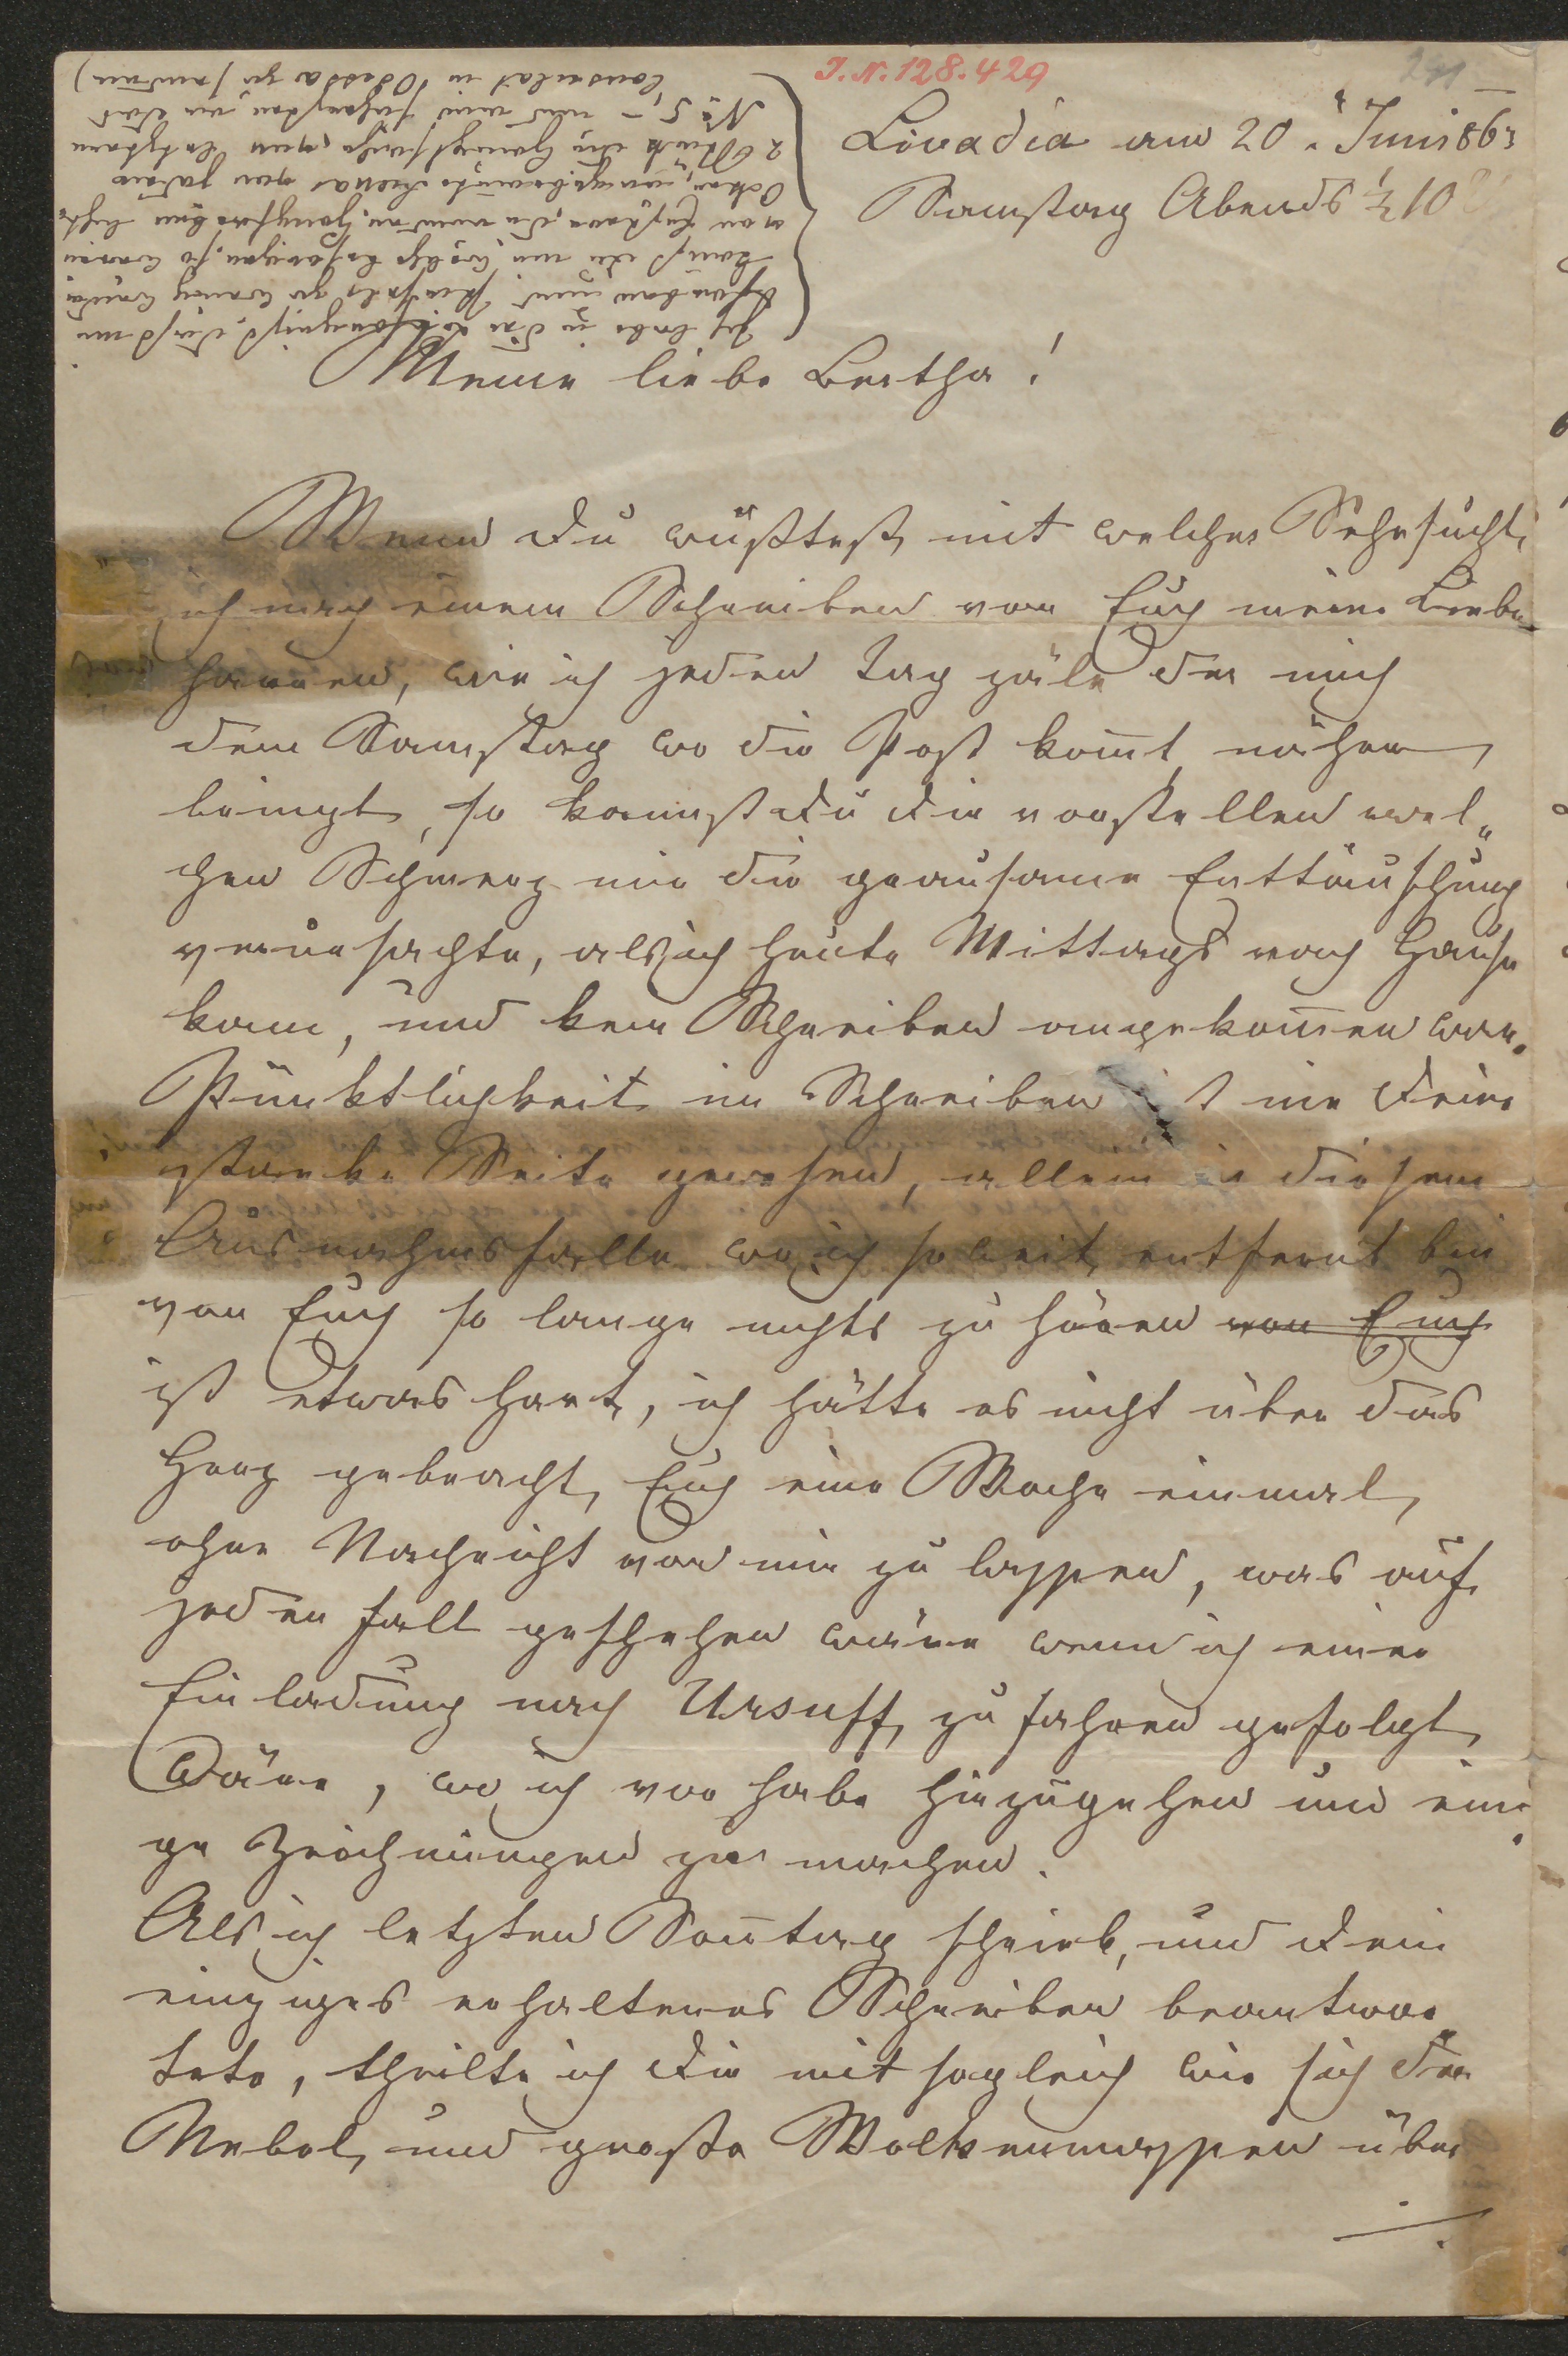 I. N. 128.429
Livadia am 20. Juni 863
Samstag Abends ½10
Meine liebe Bertha!
Wenn Du wüßtest, mit welcher Sehnsucht
ich nach einem Schreiben von Euch meine Liebe
harren, wie ich jeden Tag zäle der mich
dem Samstag wo die Post kom̄t näher
bringt, so kannst Du Dir vorstellen wel„
chen Schmerz mir die grausame Enttäuschung
verursachte, als ich heute Mittags nach Hause
kam, und kein Schreiben angekom̄en war.
Pünktlichkeit im Schreiben ist nie Deine
starke Seite gewesen, allein in diesem
Ausnahmsfalle wo ich so weit entfernt bin
von Euch so lange nichts zu hören von Euch
ist etwas hart, ich hätte es nicht über das
Herz gebracht, Euch eine Woche einmal
ohne Nachricht von mir zu lassen, was auf
jeden Fall geschehen wäre wenn ich einer
Einladung nach Ursuff zu fahren gefolgt
wäre, wo ich vor habe hinzugehen und eini
ge Zeichnungen zu machen.
Als ich letzten Son̄tag schrieb, und Dein
einziges erhaltenes Schreiben beantwor„
tete, theilte ich Dir mit sogleich wie sich der
Nebel, und große Wolkenmassen über
./.
Ich habe zu den
2 Stück
No 5, –
Consulat in Odessa zu senden)